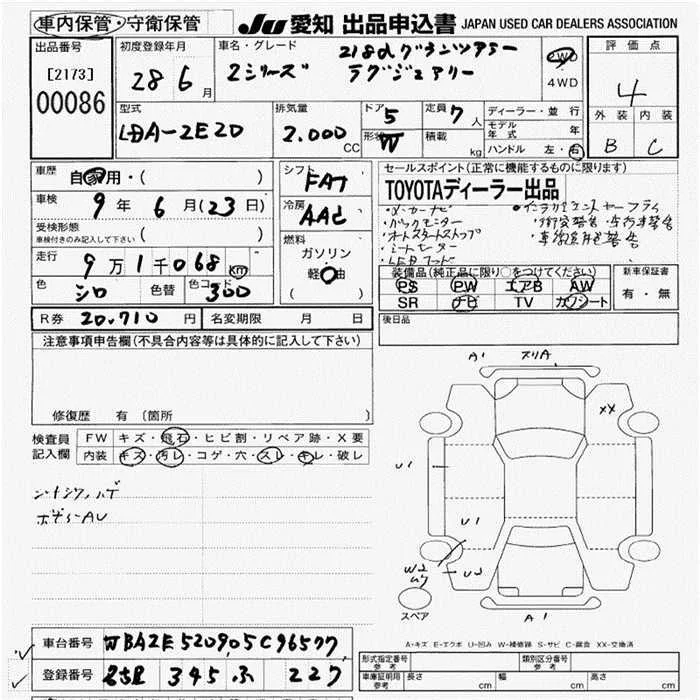 車内保管・守衛保管 JU 愛知 出品申込書 JAPAN USED CAR DEALERS ASSOCIATION
出品番号
[2173]
00086
初度登録年月
28 6 月
車名・グレード
2シリーズ
218dグランツアラー
ラグジュアリー
2WD
4WD
評価点
4
外装 内装
B C
型式
LDA-2E20
排気量
2.000 CC
ドア 5
形状 W
定員 7 人
積載 kg
ディーラー・並行
モデル年式 年
ハンドル 左・右
車歴 自家用・( )
車検 9 年 6 月(23日)
受検形態
車検付きのみ記入して下さい ( )
走行 9万1千068 km
色 シロ 色替 色コード 300
シフト
FAT
冷房
AAC
燃料
ガソリン
軽油
( )
セールスポイント(正常に機能するものに限ります)
TOYOTAディーラー出品
・メーカーナビ
・バックモニター
・オートスタートストップ
・シートヒーター
・LEDフード
装備品(純正品に限り○をつけてください)
PS PW エアB AW
SR ナビ TV カワシート
新車保証書
有・無
R券 20,710 円 名変期限 月 日
後日品
注意事項申告欄(不具合内容等は具体的に記入して下さい)
修復歴 有〔箇所 〕
検査員記入欄
FW キズ・飛石・ヒビ割・リペア跡・X要
内装 キズ・汚レ・コゲ・穴・スレ・キレ・破レ
ボディーAU
A1 スリA
XX
U1
U1
W2
U2
スペア
A1
A-キズ E-エクボ U-凹み W-補修跡 S-サビ C-腐食 XX-交換済
車台番号 WBA2E520905C96577
登録番号 名古屋 345 ふ 227
形式指定番号
参考
類別区分番号
参考
車庫証明用
参考
長さ cm 幅 cm 高さ cm